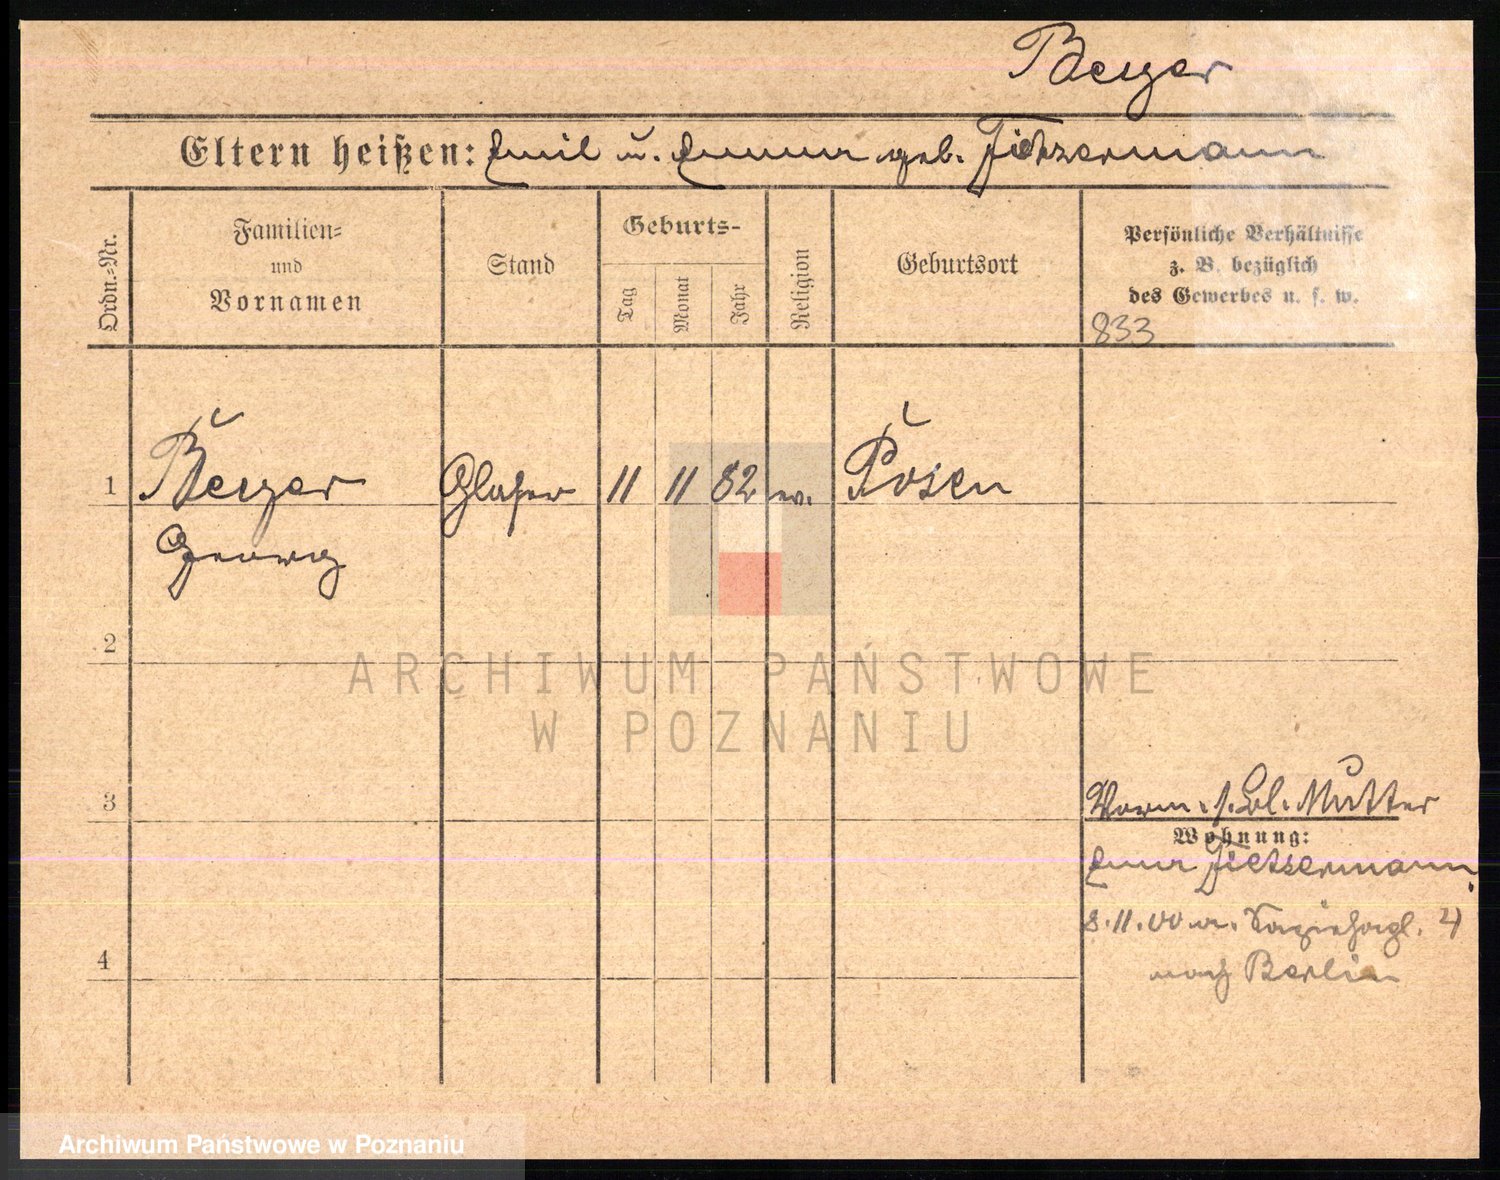 Berger
Eltern heißen: Emil u. Emma geb. Fitzermann
Ordn.-Nr.
Familien-
und
Vornamen
Stand
Geburts-
Tag
Monat
Jahr
Religion
Geburtsort
Persönliche Verhältnisse
z. B. bezüglich
des Gewerbes u. s. w.
833
1 Berger Glaser 11 11 82 ev. Posen
Georg
2
ARCHIWUM PAŃSTWOWE
W POZNANIU
3
Vorm. s. Mutter
Wohnung:
Fietzermann
8.11.00 4
4
nach Berlin
Archiwum Państwowe w Poznaniu